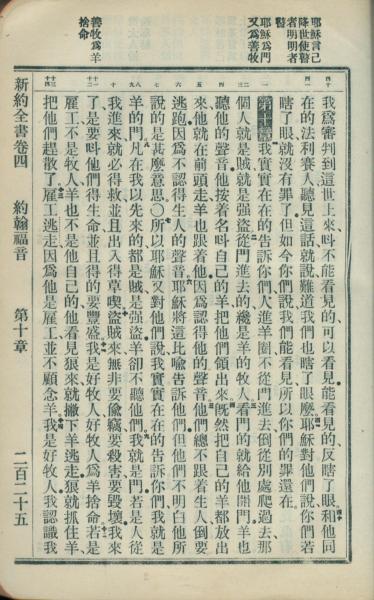 耶穌言己
降世使瞽
者明明者
瞽
耶穌爲門
又爲善牧
善牧爲羊
捨命
我爲審判到這世上來呌不能看見的可以看見能看見的反瞎了眼和他同
在的法利賽人聽見這話就說難道我們也瞎了眼麼耶穌對他們說你們若
瞎了眼就沒有罪了但如今你們說我們能看見所以你們的罪還在
第十章 我實實在在的告訴你們人進羊圈不從門進去倒從別處爬過去那
個人就是賊就是強盜從門進去的纔是羊的牧人看門的就給他開門羊也
聽他的聲音他按着名呌自己的羊把他們領出來旣然把自己的羊都放出
來他就在前頭走羊也跟着他因爲認得他的聲音他們總不跟着生人倒要
逃跑因爲不認得生人的聲音耶穌將這比喻告訴他們但他們不明白他所
說的是甚麼意思○所以耶穌又對他們說我實實在在的告訴你們我就是
羊的門凡在我以先來的都是賊是強盜羊卻不聽他們我就是門若是人從
我進來就必得救並且出入得草喫盜賊來無非要偷竊要殺害要毀壞我來
了是要呌他們得生命並且得的要豐盛我是好牧人好牧人爲羊捨命若是
雇工不是牧人羊也不是他自己的他看見狼來就撇下羊逃走狼就抓住羊
把他們趕散了雇工逃走因爲他是雇工並不顧念羊我是好牧人我認識我
新約全書卷四 約翰福音 第十章 二百二十五